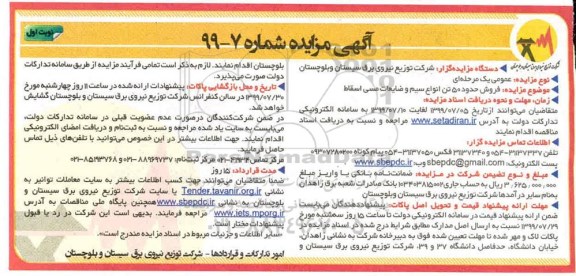 نوبت اول
آگهی مزایده شماره ۷-۹۹
دستگاه مزایده‌گزار: شرکت توزیع نیروی برق سیستان وبلوچستان
نوع مزایده: عمومی یک مرحله‌ای
موضوع مزایده: فروش حدود ۵۰ تن انواع سیم و ضایعات مسی اسقاط
زمان، مهلت و نحوه دریافت اسناد مزایده:
متقاضیان می‌توانند ازتاریخ ۱۳۹۹/۰۷/۰۵ لغایت ۱۳۹۹/۰۷/۱۰ به سامانه الکترونیکی
تدارکات دولت به آدرس www.setadiran.ir مراجعه و نسبت به دریافت اسناد
مناقصه اقدام نمایند
اطلاعات تماس مزایده گزار:
پست الکترونیک: sbepdc@gmail.com وب www.sbepdc.ir
مبلغ و نوع تضیین شرکت در مزایده: ضمانت‌نامه بانکی یا واریز مبلغ
بنام سایر درآمدها شرکت توزیع نیروی برق سیستان وبلوچستان
مهلت ارائه پیشنهاد قیمت و تحویل اصل پاکات: پیشنهاددهندگان می‌بایست
ضمن ارائه پیشنهاد قیمت در سامانه الکترونیکی دولت تا ساعت ۱۵ روز سه‌شنبه مورخ
۱۳۹۹/۰۷/۲۹ نسبت به ارسال اصل مدارک مطابق شرایط درج شده در اسناد مزایده در
پاکات لاک و مهر شده تا مهلت تعیین شده فوق به دبیرخانه شرکت به نشانی زاهدان
خیابان دانشگاه، حدفاصل دانشگاه ۳۷ و ۳۹، شرکت توزیع نیروی برق سیستان و
بلوچستان اقدام نمایند. لازم به ذکر است تمامی فرآیند مزایده از طریق سامانه تدارکات
دولت صورت می‌پذیرد.
تاریخ و محل بازگشایی پاکات: پیشنهادات ارائه شده در ساعت ۱۱ روز چهارشنبه مورخ
۱۳۹۹/۰۷/۳۰ در سالن کنفرانس شرکت توزیع نیروی برق سیستان و بلوچستان گشایش
خواهد شد.
در ضمن شرکت‌کنندگان درصورت عدم عضویت قبلی در سامانه تدارکات دولت،
می‌بایست به سایت یاد شده مراجعه و نسبت به ثبت‌نام و دریافت امضای الکترونیکی
اقدام نمایند. جهت اطلاعات بیشتر در این خصوص می‌توانید با تلفن‌های ذیل تماس
حاصل فرمایید.
مرکز ثبت‌نام: ۸۸۹۶۹۷۳۷-۰۲۱ و ۸۵۱۹۳۷۶۸-۰۲۱
مدت قرارداد: ۱۵ روز
ضمنا متقاضیان می‌توانند جهت کسب اطلاعات بیشتر به سایت معاملات توانیر به
نشانی Tender.tavanir.org.ir یا سایت شرکت توزیع نیروی برق سیستان و
بلوچستان به نشانی www.sbepdc.ir همچنین پایگاه ملی مناقصات به آدرس
www.iets.mporg.ir مراجعه فرمایند. بدیهی است این شرکت در رد یا قبول
پیشنهادات مختار است.
-سایر اطلاعات و جزئیات مربوط در اسناد مزایده مندرج است.
امور تدارکات و قراردادها - شرکت توزیع نیروی برق سیستان و بلوچستان